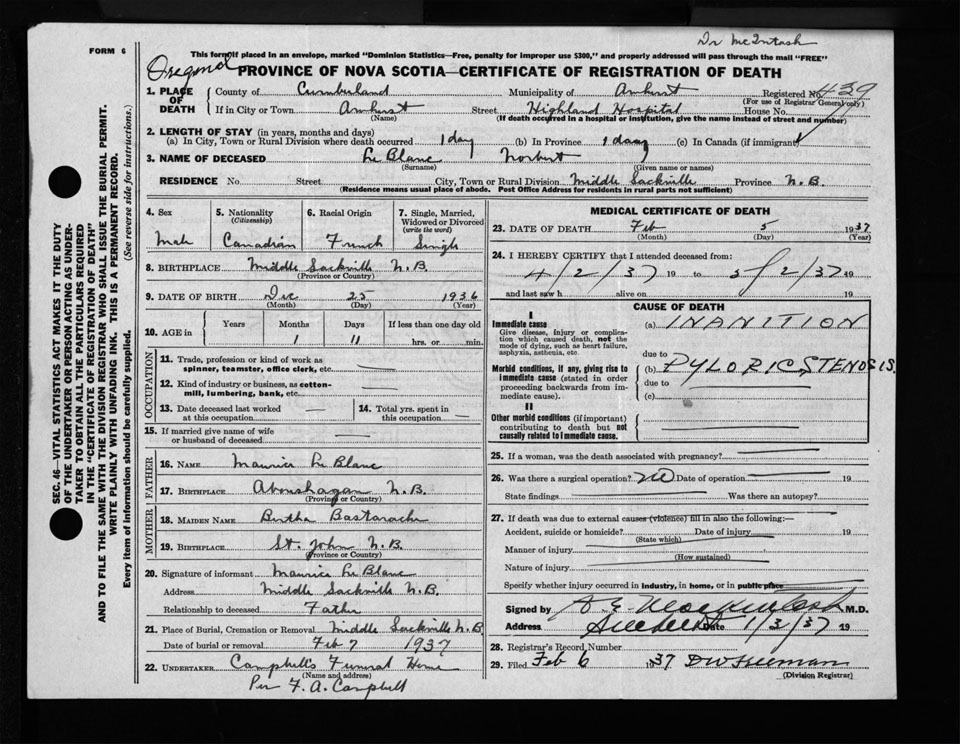 Dr McIntosh
FORM 6
This form if placed in an envelope, marked "Dominion Statistics—Free, penalty for improper use $300," and properly addressed will pass through the mail "FREE"
PROVINCE OF NOVA SCOTIA—CERTIFICATE OF REGISTRATION OF DEATH
1. PLACE OF DEATH County of Cumberland Municipality of Amherst Registered No. 439
(For use of Registrar General only)
If in City or Town Amherst Street Highland Hospital House No.
(Name) (If death occurred in a hospital or institution, give name instead of street and number)
2. LENGTH OF STAY (in years, months and days)
(a) In City, Town or Rural Division where death occurred 1 day (b) In Province 1 day (c) In Canada (if immigrant)
3. NAME OF DECEASED Le Blanc Norbert
(Surname) (Given name or names)
RESIDENCE No. Street City, Town or Rural Division Middle Sackville Province N.B.
(Residence means usual place of abode. Post Office Address for residents in rural parts not sufficient)
4. Sex 5. Nationality (Citizenship) 6. Racial Origin 7. Single, Married, Widowed or Divorced (write the word)
Male Canadian French Single
8. BIRTHPLACE Middle Sackville N.B.
(Province or Country)
9. DATE OF BIRTH Dec 25 1936
(Month) (Day) (Year)
10. AGE in Years Months Days If less than one day old
1 11 hrs. or min.
OCCUPATION
11. Trade, profession or kind of work as spinner, teamster, office clerk, etc.
12. Kind of industry or business, as cotton-mill, lumbering, bank, etc.
13. Date deceased last worked at this occupation 14. Total yrs. spent in this occupation
15. If married give name of wife or husband of deceased
FATHER
16. NAME Maurice Le Blanc
17. BIRTHPLACE Aboushagan N.B.
(Province or Country)
MOTHER
18. MAIDEN NAME Bertha Bastarache
19. BIRTHPLACE St. John N.B.
(Province or Country)
20. Signature of informant Maurice Le Blanc
Address Middle Sackville N.B.
Relationship to deceased Father
21. Place of Burial, Cremation or Removal Middle Sackville N.B.
Date of burial or removal Feb 7 1937
22. UNDERTAKER Campbell's Funeral Home
(Name and address)
Per F. A. Campbell
MEDICAL CERTIFICATE OF DEATH
23. DATE OF DEATH Feb 5 1937
(Month) (Day) (Year)
24. I HEREBY CERTIFY that I attended deceased from:
4/2/37 19 to 5/2/37 19
and last saw h alive on 19
CAUSE OF DEATH
I
Immediate cause (a) INANITION
Give disease, injury or complication which caused death, not the mode of dying, such as heart failure, asphyxia, asthenia, etc.
due to
Morbid conditions, if any, giving rise to immediate cause (stated in order proceeding backwards from immediate cause).
(b) PYLORIC STENOSIS.
due to
(c)
II
Other morbid conditions (if important) contributing to death but not causally related to immediate cause.
25. If a woman, was the death associated with pregnancy?
26. Was there a surgical operation? No Date of operation 19
State findings Was there an autopsy?
27. If death was due to external causes (violence) fill in also the following:—
Accident, suicide or homicide? Date of injury 19
(State which)
Manner of injury
(How sustained)
Nature of injury
Specify whether injury occurred in industry, in home, or in public place
Signed by M.D.
Address Amherst Date 1/3/37 19
28. Registrar's Record Number
29. Filed Feb 6 1937 D W Freeman
(Division Registrar)
SEC. 46—VITAL STATISTICS ACT MAKES IT THE DUTY
OF THE UNDERTAKER OR PERSON ACTING AS UNDER-
TAKER TO OBTAIN ALL THE PARTICULARS REQUIRED
IN THE "CERTIFICATE OF REGISTRATION OF DEATH"
AND TO FILE THE SAME WITH THE DIVISION REGISTRAR WHO SHALL ISSUE THE BURIAL PERMIT.
WRITE PLAINLY WITH UNFADING INK. THIS IS A PERMANENT RECORD.
Every item of information should be carefully supplied. (See reverse side for instructions.)